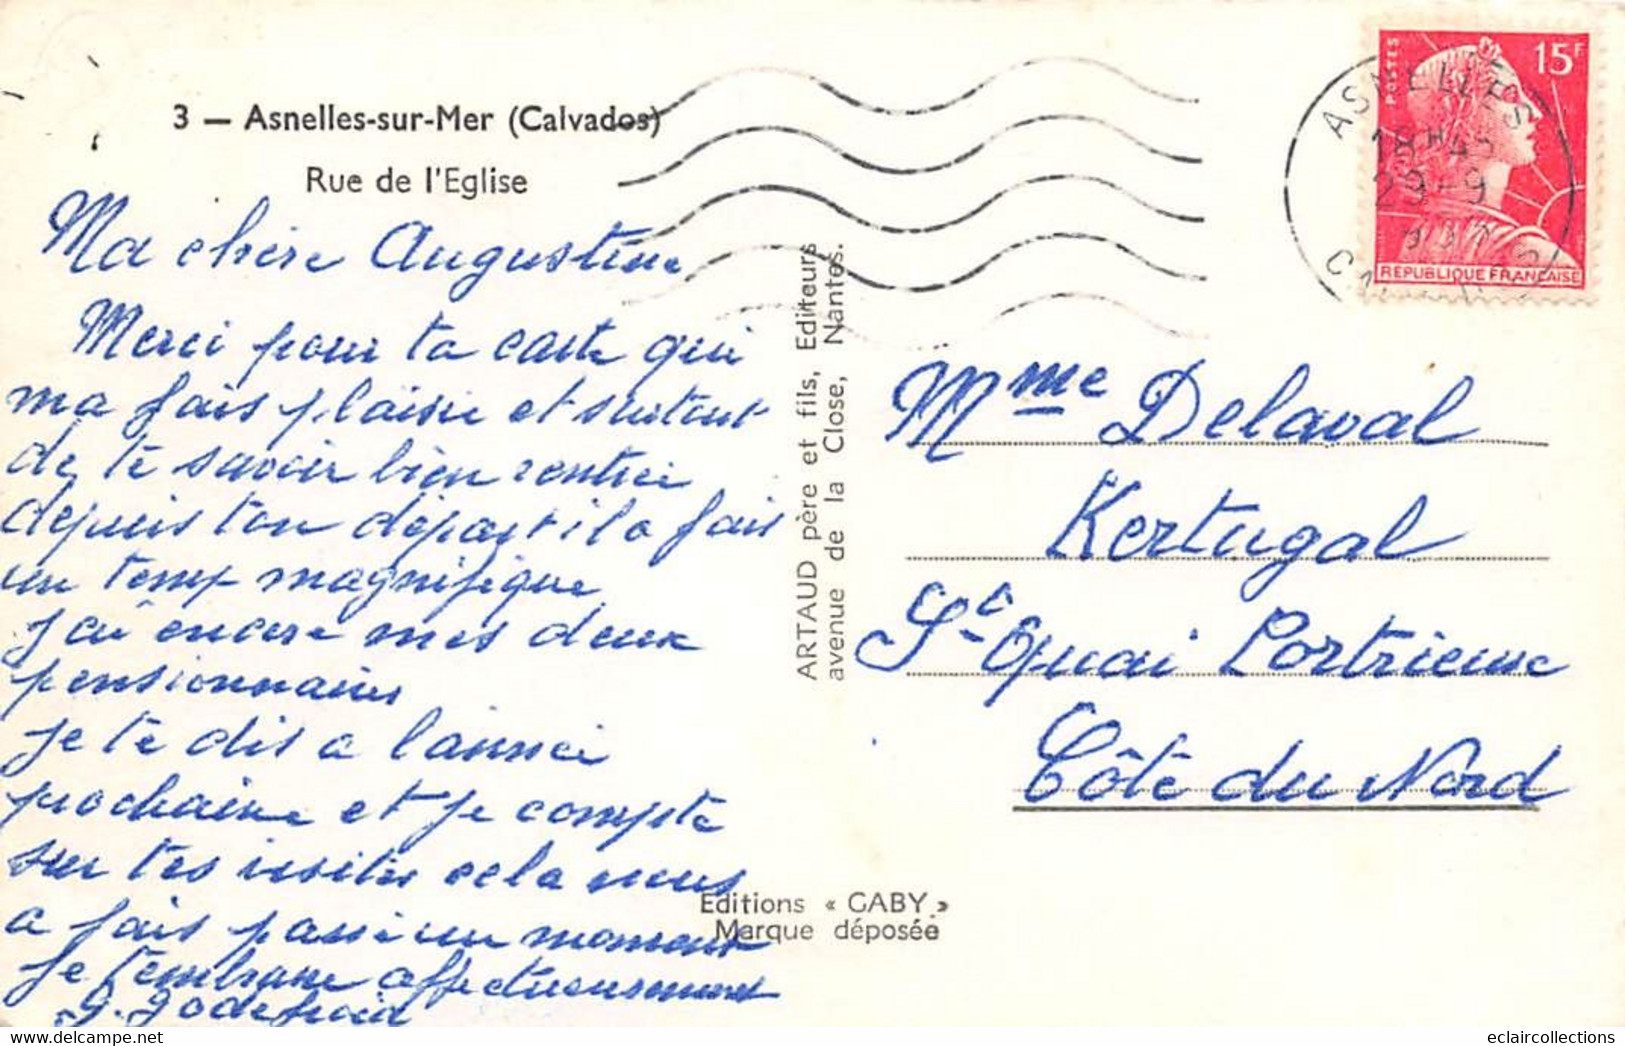 3 — Asnelles-sur-Mer (Calvados)
Rue de l'Eglise
Ma chère Augustine
Merci pour ta carte qui
ma fais plaisir et surtout
de te savoir bien rentrée
depuis ton départ il a fais
un temp magnifique
j'ai encore mes deux
pensionnaires
je te dis a l'année
prochaine et je compte
sur tes visites cela nous
a fais passé un moment
je t'embrasse affectueusement
G. Godefroid
ARTAUD père et fils, Editeurs
avenue de la Close, Nantes.
Editions « GABY »
Marque déposée
POSTES 15F
REPUBLIQUE FRANÇAISE
ASNELLES
18H
29-9
Mme Delaval
Kertugal
St Quai Portrieux
Côte du Nord
eclaircollections